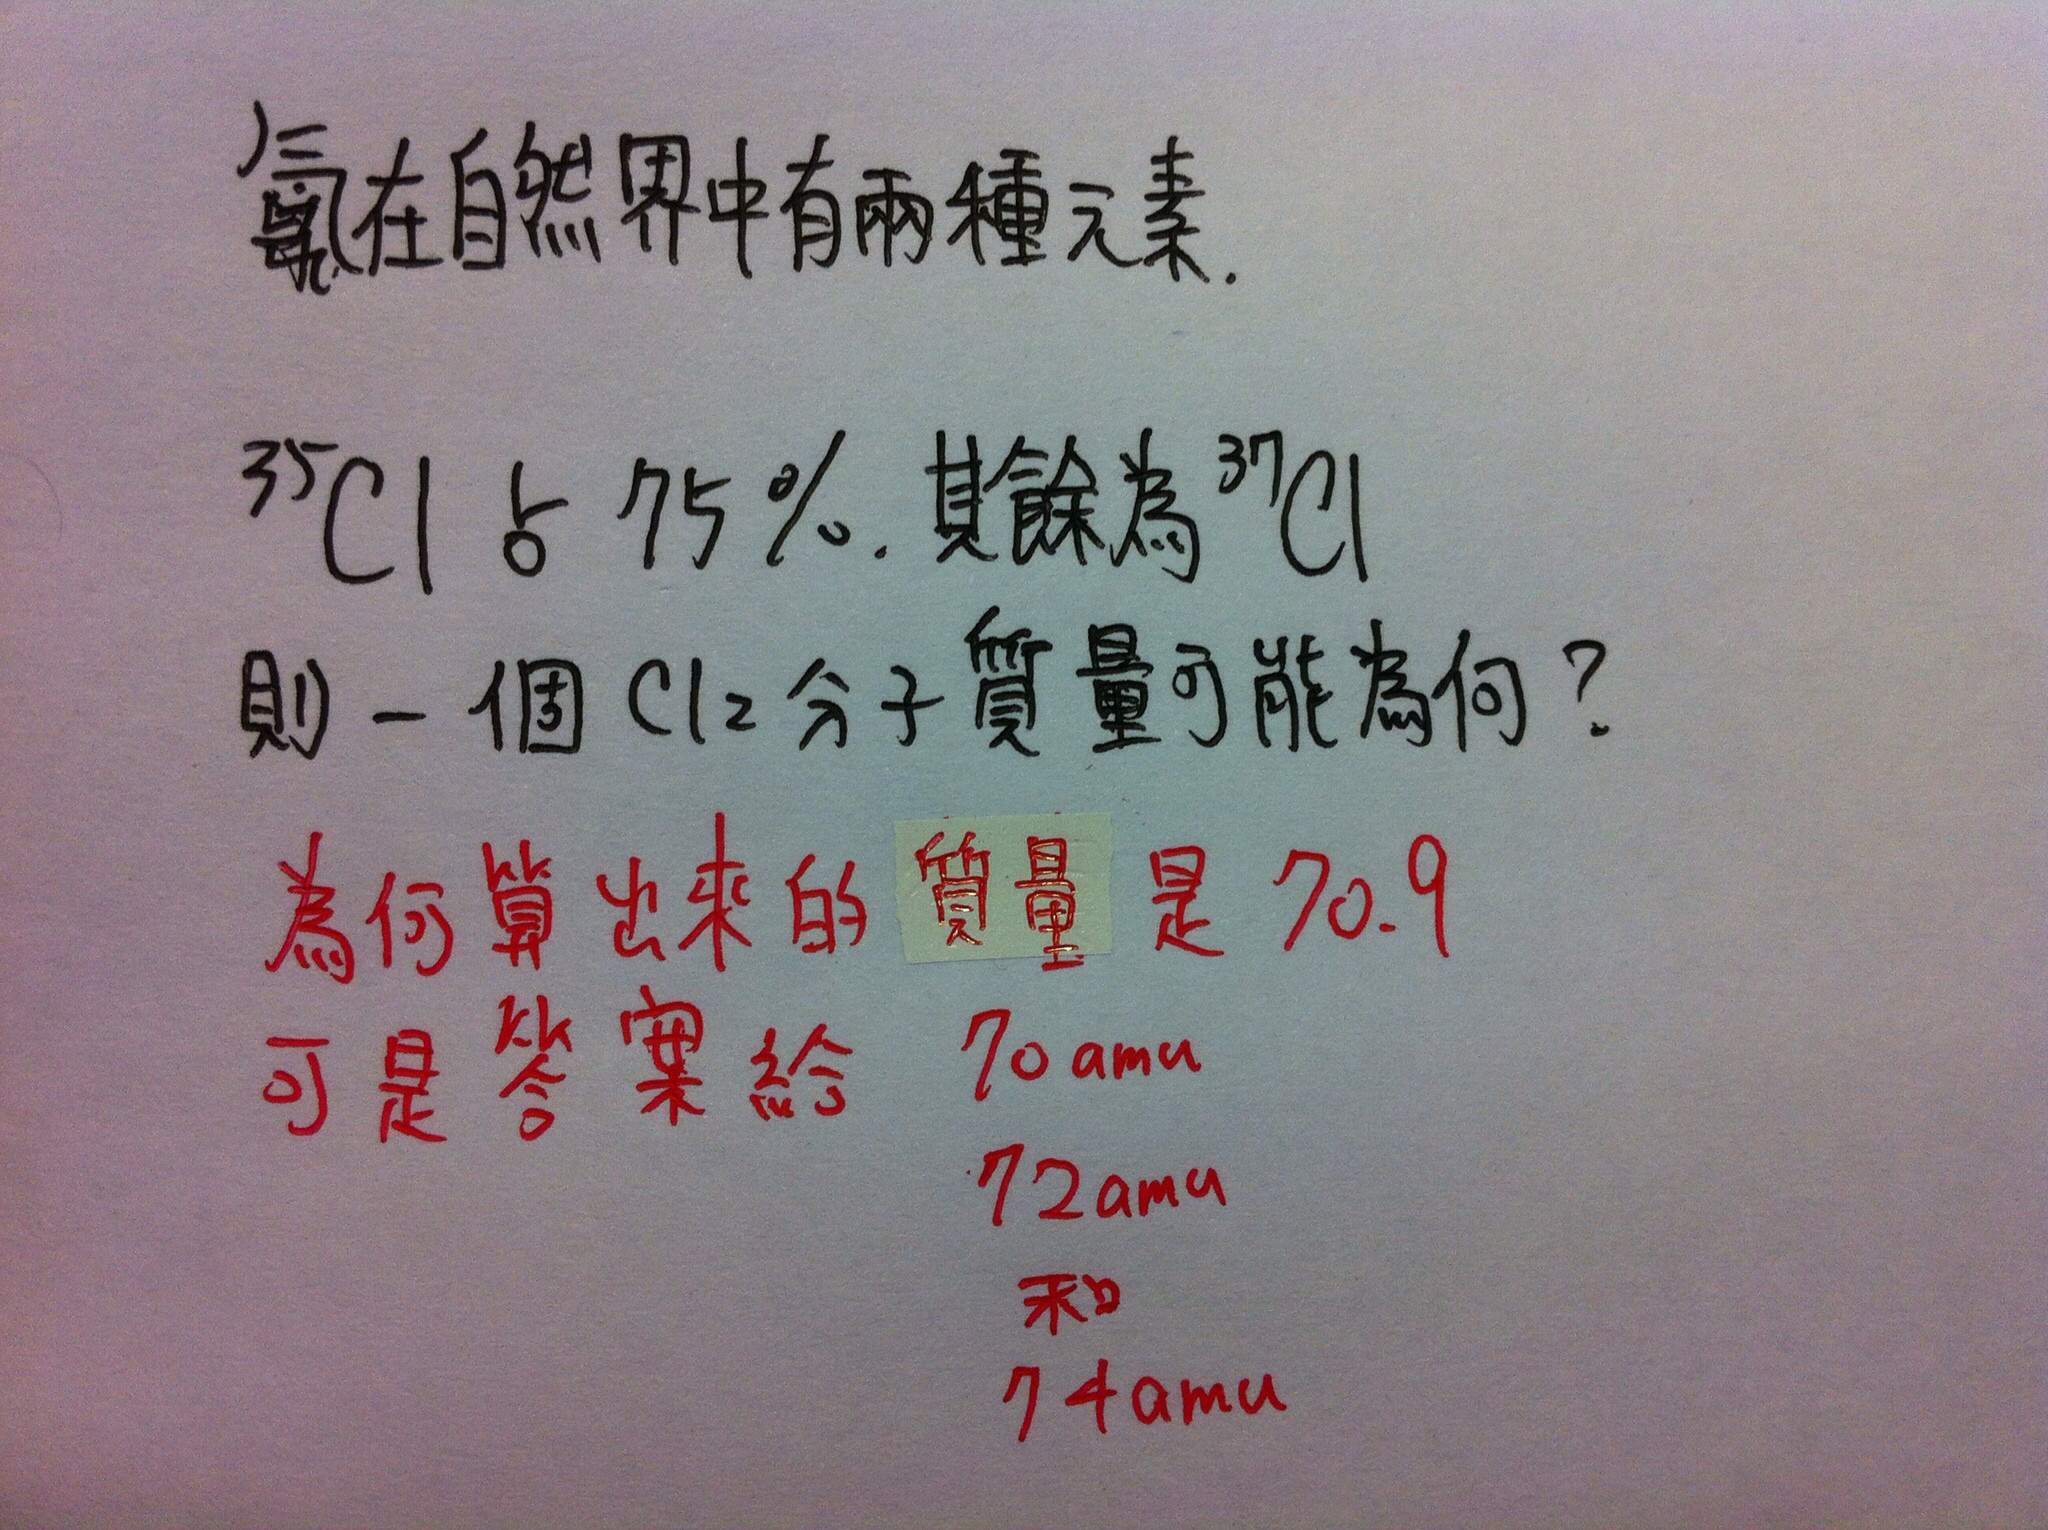 氯在自然界中有兩種元素.
³⁵Cl 占 75%. 其餘為 ³⁷Cl
則一個 Cl₂ 分子質量可能為何?
為何算出來的質量是 70.9
可是答案給 70amu
72amu
和
74amu